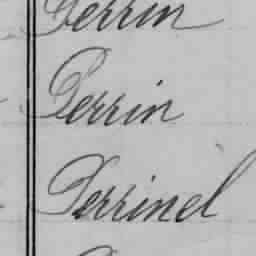 Perrin
Perrin
Perrinel